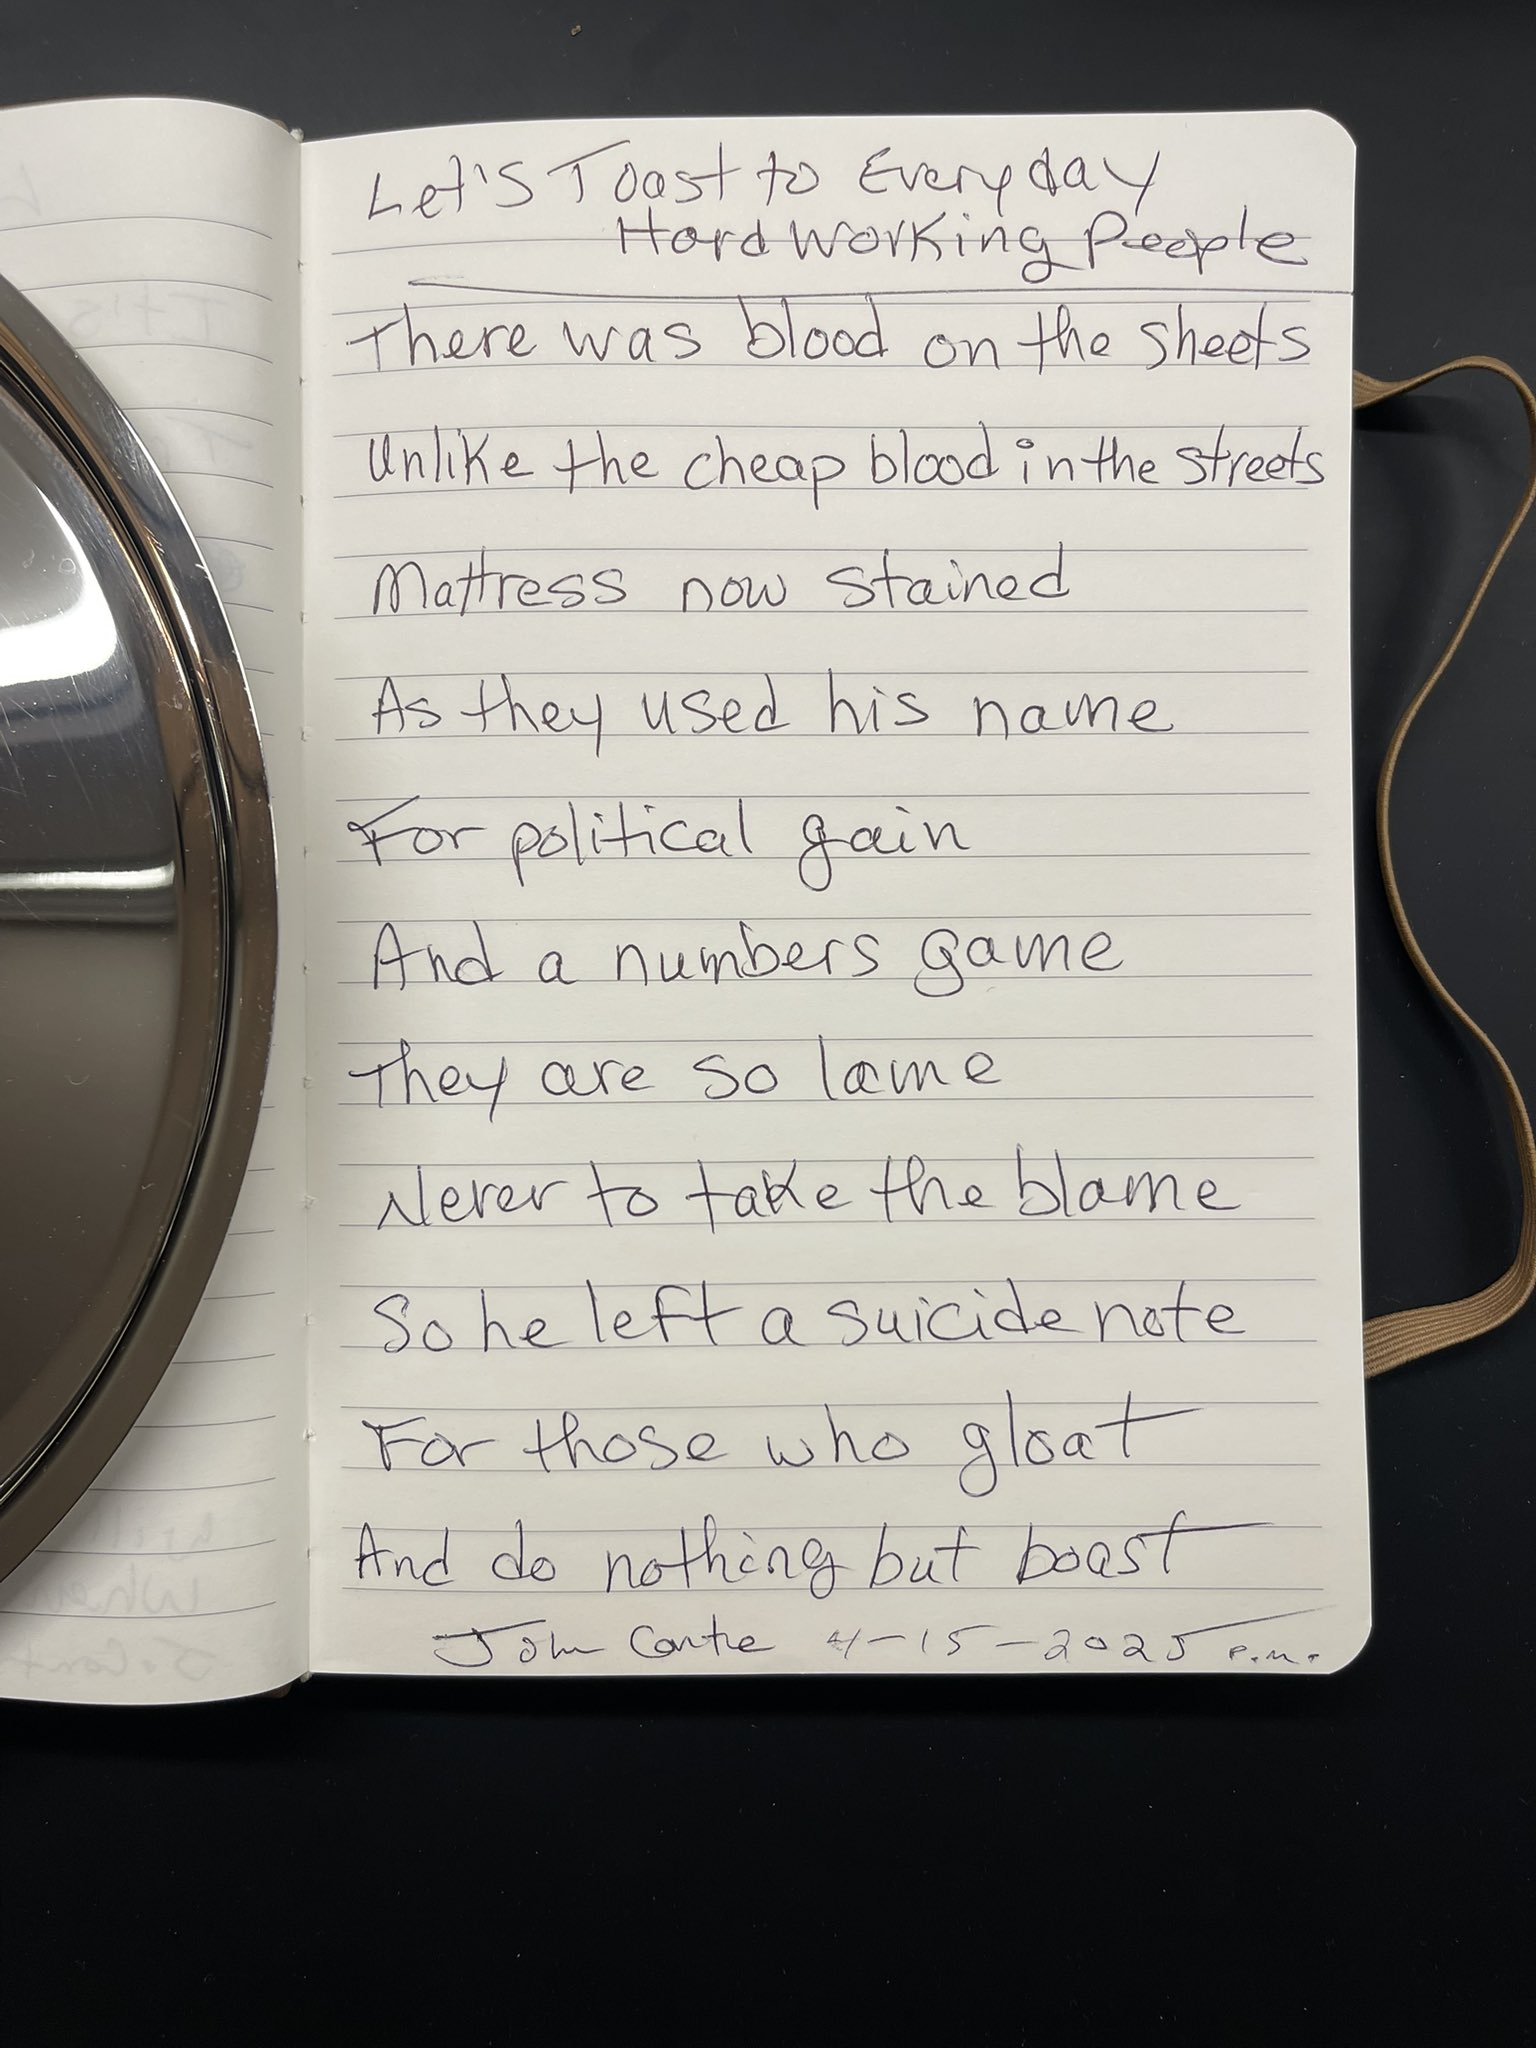 Let's Toast to Everyday
Hard Working People
There was blood on the sheets
Unlike the cheap blood in the streets
Mattress now stained
As they used his name
For political gain
And a numbers game
They are so lame
Never to take the blame
So he left a suicide note
For those who gloat
And do nothing but boast
John Conte 4-15-2025 P.M.